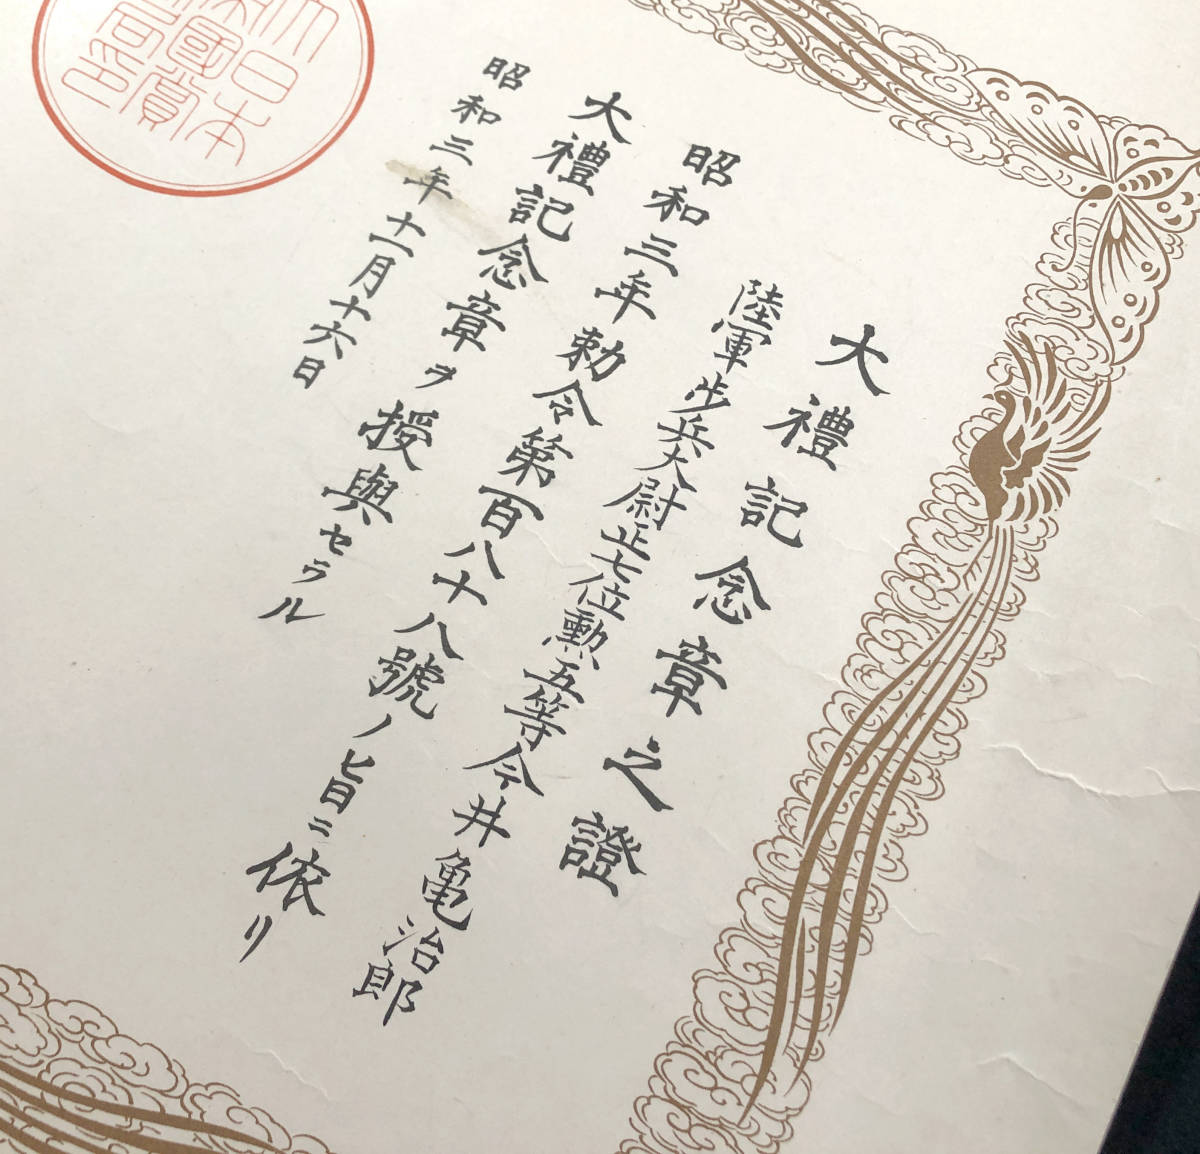 大禮記念章之證
陸軍歩兵大尉正七位勲五等今井亀治郎
昭和三年勅令第百八十八號ノ旨ニ依リ
大禮記念章ヲ授與セラル
昭和三年十一月十六日
大日本
帝國賞
勲局印